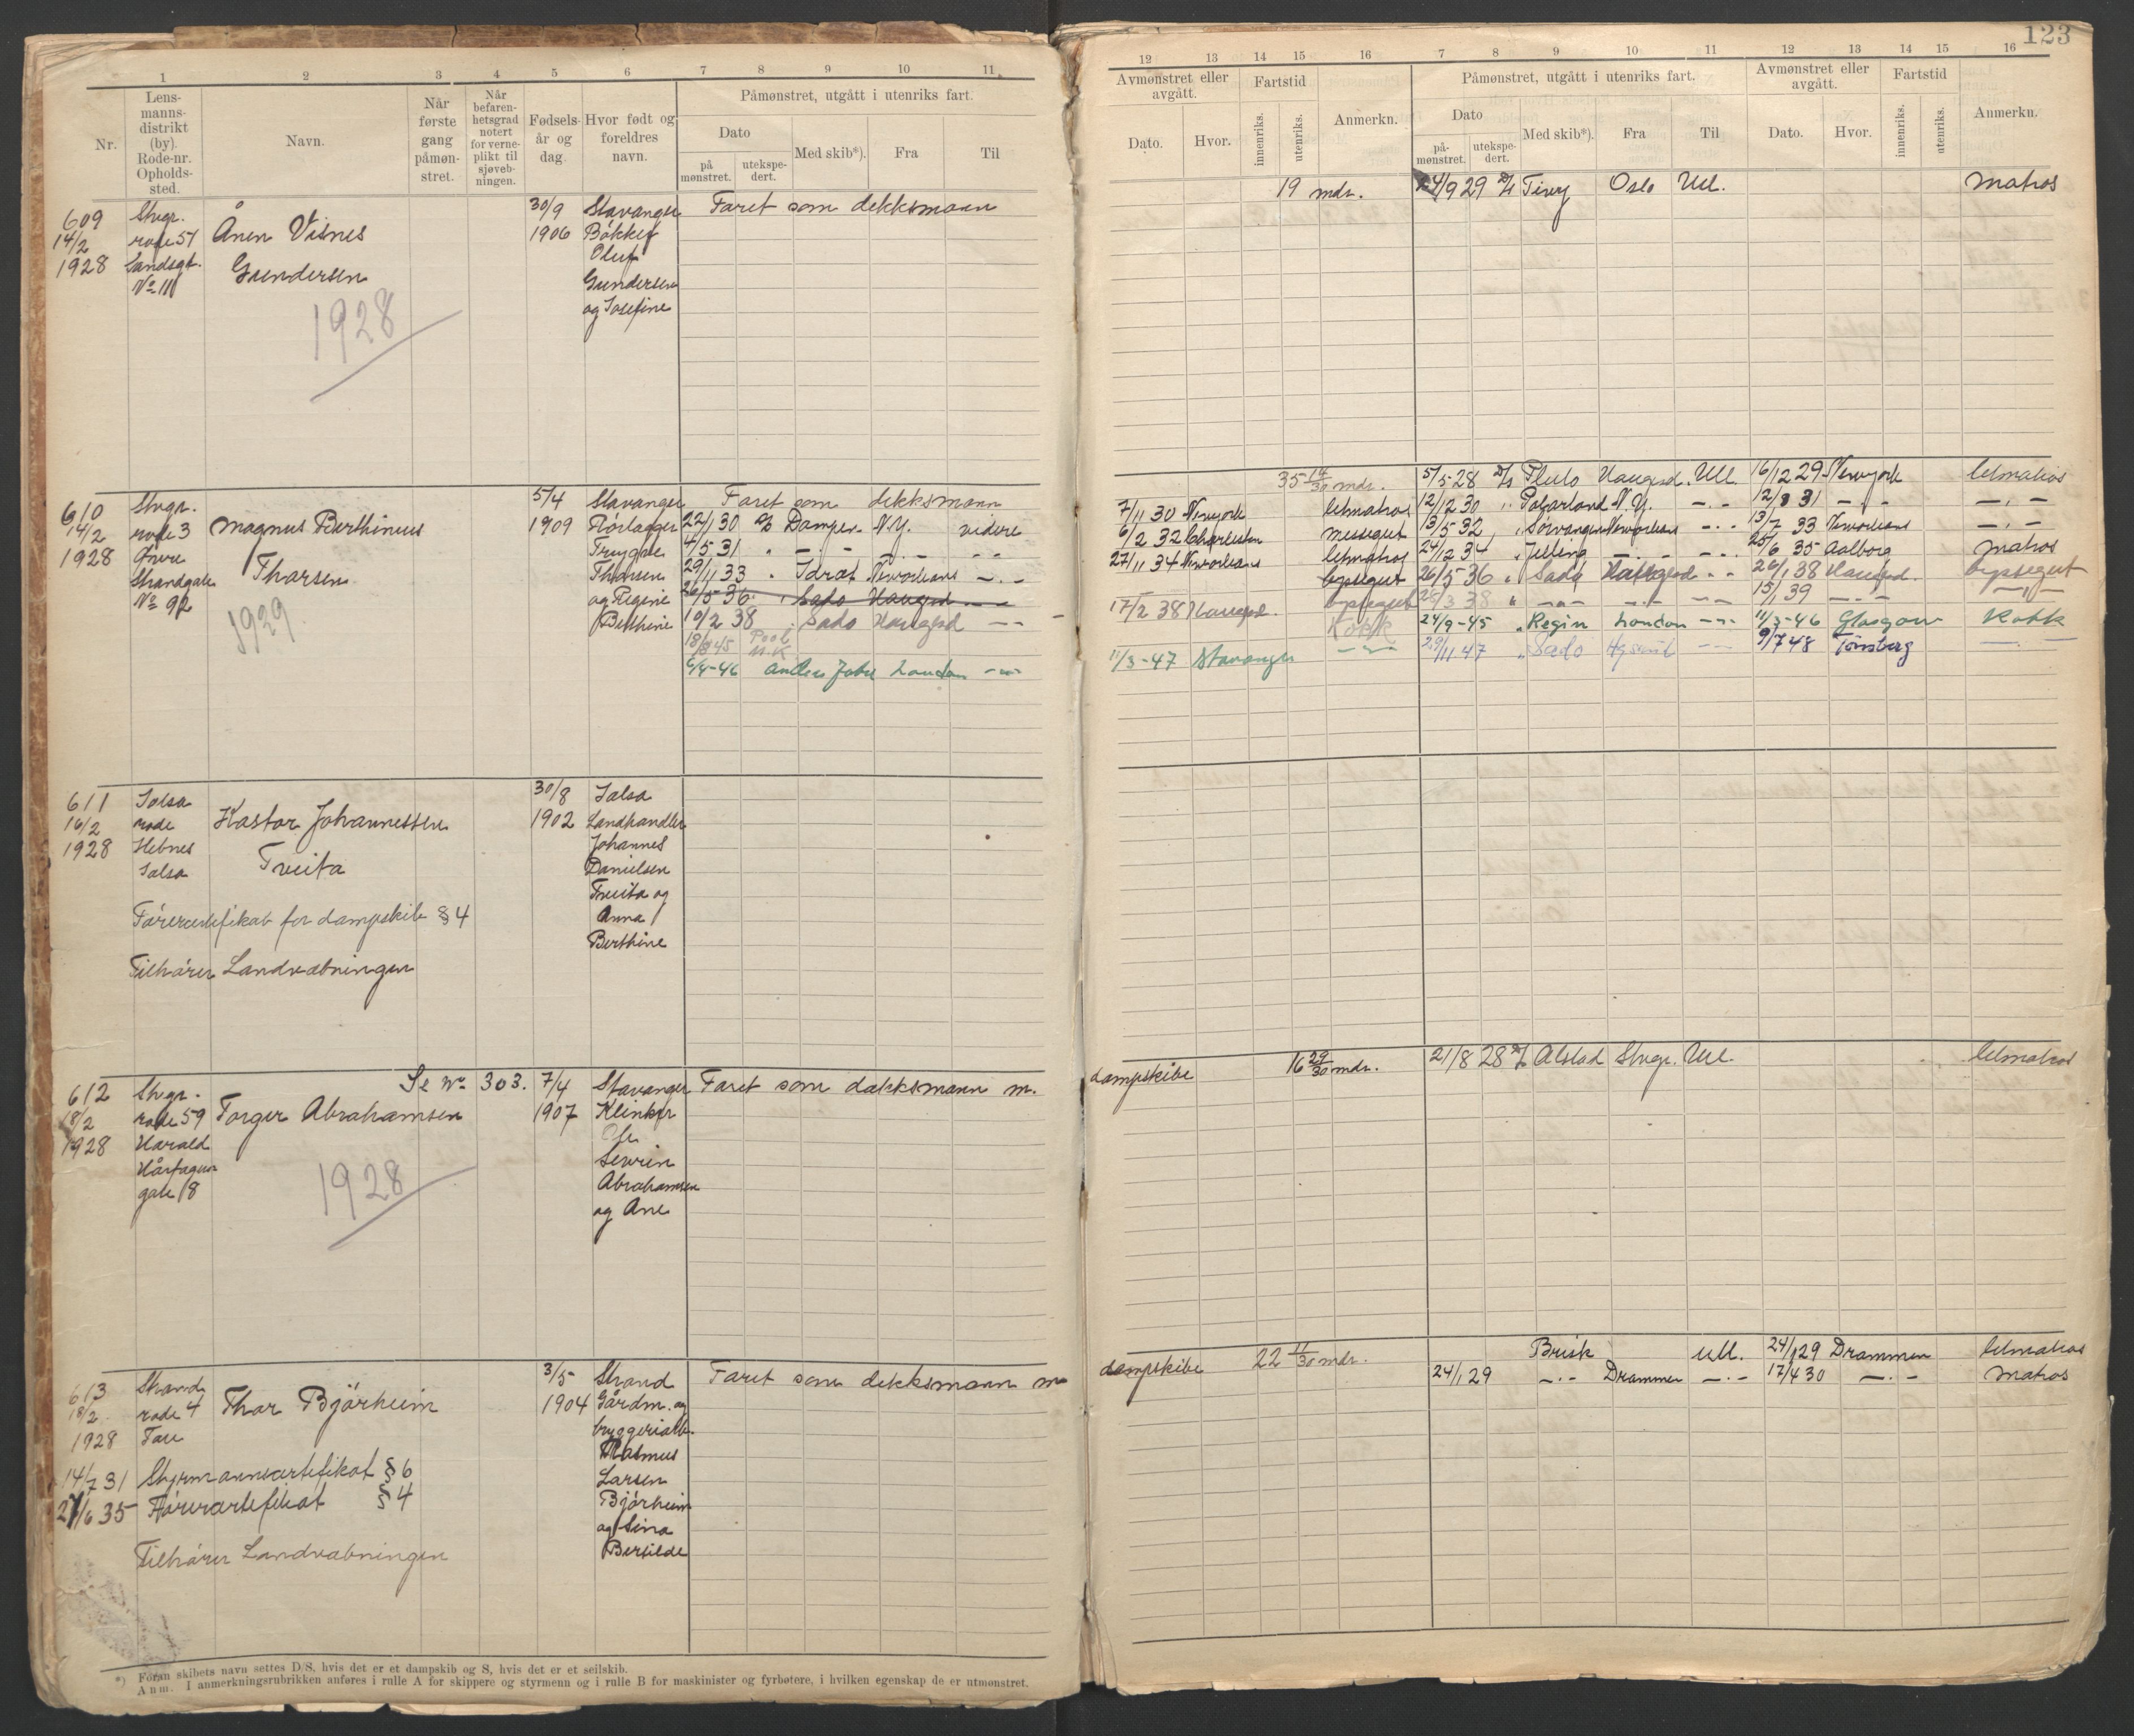 123
1 2 3 4 5 6 7 8 9 10 11
Nr. Lensmannsdistrikt (by). Rode-nr. Opholdssted. Navn. Når første gang påmønstret. Når befarenhetsgrad notert for verneplikt til sjøvebningen. Fødselsår og dag. Hvor født og foreldres navn.
Påmønstret, utgått i utenriks fart.
Dato Med skib*). Fra Til
på mønstret. utekspedert.
609 Stvgr. 30/9 Stavanger Faret som dekksmann
14/2 rode 57 Ånen Visnes 1906 Bökker
1928 Sandsgt. Gundersen Oluf
No 11 Gundersen
og Josefine
1928
610 Stvgr. 5/4 Stavanger Faret som dekksmann
14/2 rode 3 Magnus Berthinius 1909 22/1 30 Damper. N.Y. videre
1928 Øvre Thorsen Trygve 4/5 31 " -.- -.- - -
Strandgate Thorsen 29/11 33 " Idræt Neworleans -.-
No 92 og Regine 26/5 36 " Sado Haugsd - -
Berthine 10/2 38 " Sado Haugsd - -
1929
18/8 45 Pool U.K.
6/4-46 Anders Jahre London -"-
611 Jælsa 30/8 Jælsa
16/2 rode Kastor Johannessen 1902 Landhandler
1928 Hebnes Johannes
Jælsa Tveita Danielsen
Tveita og
Förercertifikat for dampskib § 4 Anna
Berthine
Tilhörer Landvæbningen
Se No 303.
612 Stvgr. 7/4 Stavanger Faret som dækksmann m.
18/2 rode 59 Torger Abrahamsen 1907
1928 Harald
Hårfagres Sevrin
gate 18 Abrahamsen
og Ane
1928
613 Strand 3/5 Strand Faret som dekksmann m
18/2 rode 4 Thor Bjørheim 1904 Gårdm. og
1928 Tau bryggeriarb.
Rasmus
14/7 31 Styrmannscertifikat § 6 Larsen
27/6 35 Förercertifikat § 4 Bjørheim
og Sina
Tilhörer Landvæbningen Bertilde
*) Foran skibets navn settes D/S, hvis det er et dampskib og S, hvis det er et seilskib.
Anm. I anmerkningsrubrikken anføres i rulle A for skippere og styrmenn og i rulle B for maskinister og fyrbøtere, i hvilken egenskap de er utmønstret.
12 13 14 15 16 7 8 9 10 11 12 13 14 15 16
Avmønstret eller avgått. Fartstid Anmerkn. Påmønstret, utgått i utenriks fart. Avmønstret eller avgått. Fartstid Anmerkn.
Dato. Hvor. innenriks. utenriks. Dato Med skib*). Fra Til Dato. Hvor. innenriks. utenriks.
påmønstret. utekspedert.
19 mdr. 24/9 29 D/S Tivy Oslo Utl. Matros
35 14/30 mdr. 5/5-28 D/S Pluto Haugsd. Utl. 16/12 29 Newyork letmatros
7/11 30 Newyork letmatros 12/12 30 " Polarland N.Y. -.- 12/8 31 -.- -.-
6/2 32 Charleston messegut 13/5 32 " Sørvangen Neworleans -.- 13/7 33 Neworleans -.-
27/11 34 Neworleans letmatros 24/12 34 " Jelling -.- -.- 25/6 35 Aalborg Matros
byssegut 26/5 36 " Sado Haugesd - - 26/1 38 Haugsd. byssegut
17/2 38 Haugsd. byssegut 28/3 38 " -.- -.- - - 15/1 39 -.- -.-
Kokk 24/9-45 " Regin London -"- 11/3-46 Glasgow Kokk
11/3-47 Stavanger -"- 29/11 47 " Sado - - 9/7 48 Tønsberg -.-
dampskibe 16 29/30 mdr. 21/8 28 D/S Alstad Stvgr. Utl. letmatros
dampskibe 22 11/30 mdr. Brisk Utl. 24/1 29 Drammen letmatros
24/1 29 -.- Drammen -.- 17/4 30 -.- Matros